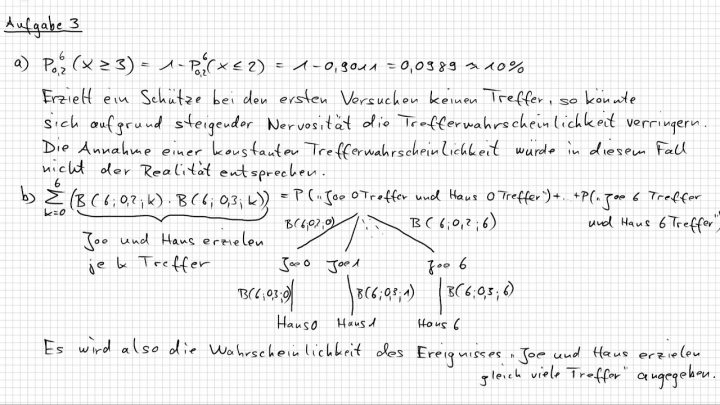 Aufgabe 3
a) P_{0,2}^{6} (X ≥ 3) = 1 - P_{0,2}^{6}(X ≤ 2) = 1 - 0,9011 = 0,0989 ≈ 10%
Erzielt ein Schütze bei den ersten Versuchen keinen Treffer, so könnte
sich aufgrund steigender Nervosität die Trefferwahrscheinlichkeit verringern.
Die Annahme einer konstanten Trefferwahrscheinlichkeit würde in diesem Fall
nicht der Realität entsprechen.
b) \sum_{k=0}^{6} (B(6; 0,2; k) · B(6; 0,3; k)) = P("Joe 0 Treffer und Hans 0 Treffer") + .. + P("Joe 6 Treffer
und Hans 6 Treffer")
B(6;0,2;0) B(6; 0,2; 6)
Joe und Hans erzielen
je k Treffer
Joe 0 Joe 1 Joe 6
B(6; 0,3; 0) B(6; 0,3; 1) B(6; 0,3; 6)
Hans 0 Hans 1 Hans 6
Es wird also die Wahrscheinlichkeit des Ereignisses "Joe und Hans erzielen
gleich viele Treffer" angegeben.